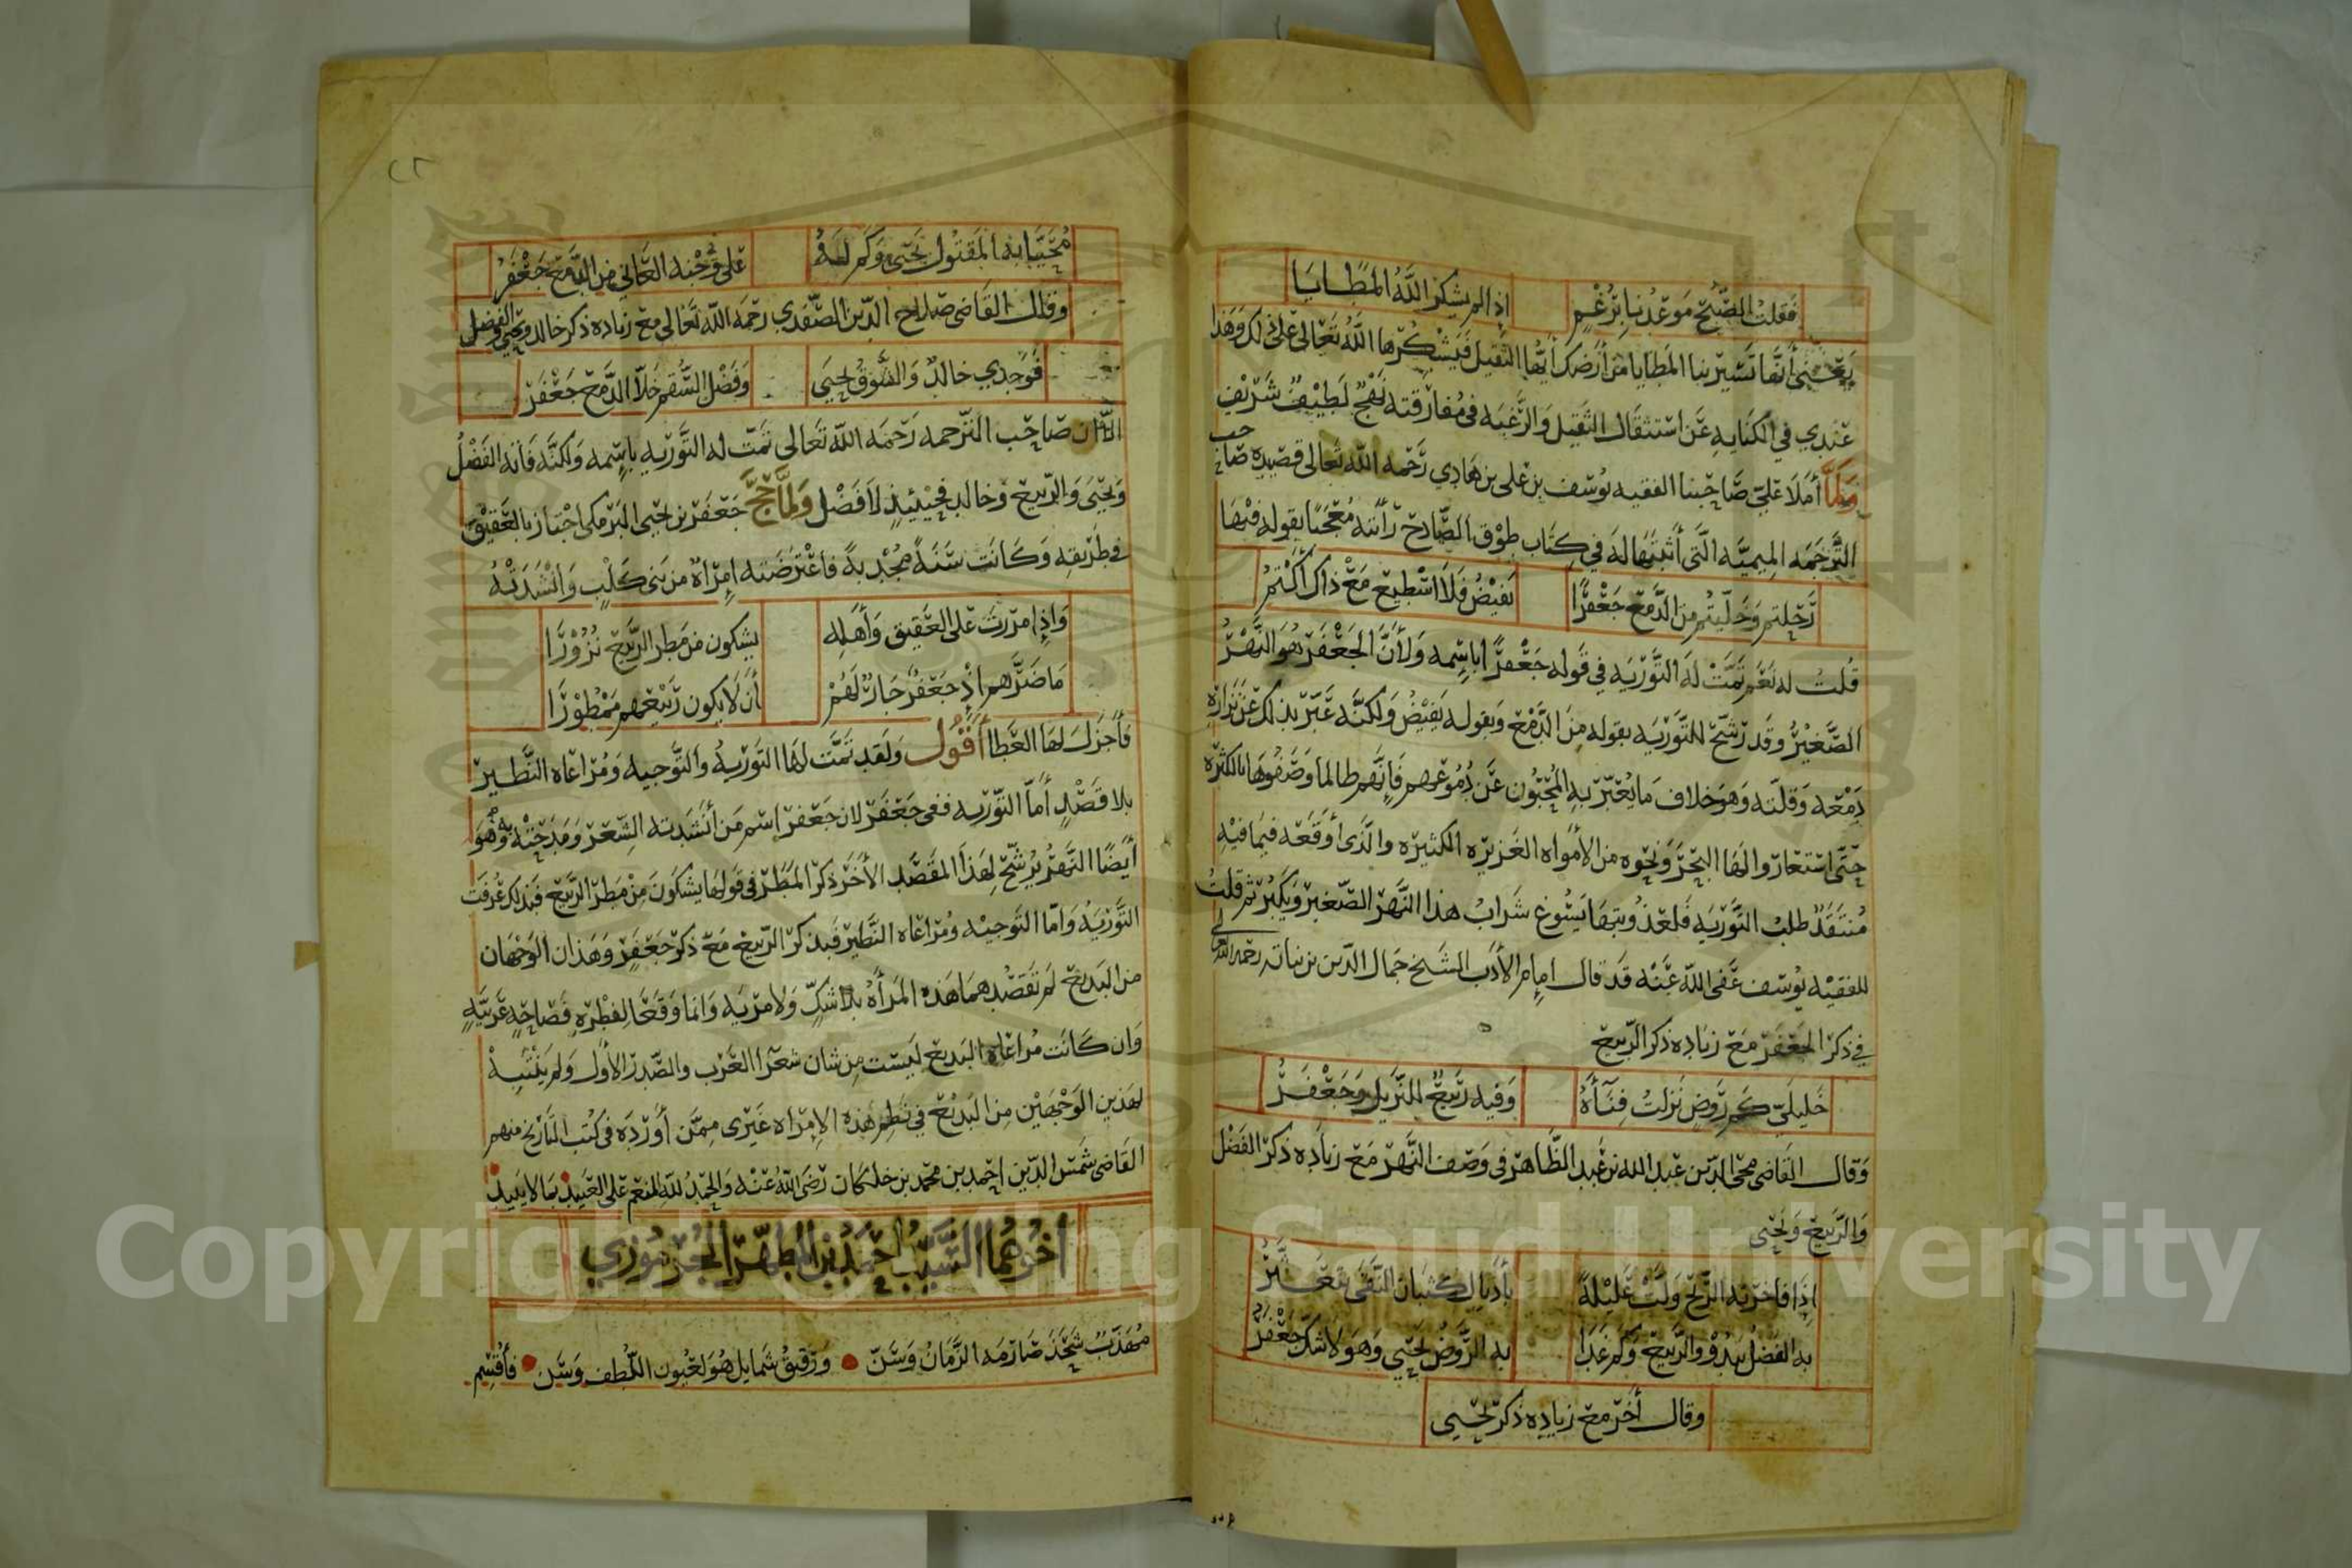 فَقلتُ الصُّبْح مَوعدُنا بِرُغْمٍ إذا لم يشكر اللَّهُ المَطَايَا
يَعْنِي أنَّها تَسير بنا المَطايا من أرْضِك أيُّها الثَّقيل فَيَشْكُرها اللَّهُ تَعَالى عَلى ذلك وَهَذا
عِنْدي في الكنايه عَن استثقال الثقيل وَالرَّغْبَه في مُفارَقته نَهْج لَطيْفٌ شَريْف
وَلمَّا أملا عَليّ صَاحِبنا الفقيه يوُسف بن علي بن هَادي رَحمه اللَّه تعالى قصيده صَاحب
التَّرجَمَه الميميَّه الَّتي أثبتُها لهَ في كتَاب طوْق الصَّادح رَأيته مُعْجَبًا بقوله فيْها
رَحَلتم وَخَلّيتُم مِن الدَّمع جَعْفَرًا يَفيْضُ فَلَا اسْطِيع مَعْ ذاك أكْتمُ
قُلتُ له نعَم تمَّتْ لهَ التَّوْريَه في قَوله جَعْفَرًا بإسمه وَلأنَّ الجَعْفَر هُوَ النَّهْرُ
الصَّغيْرُ وقَد رَشَّح للتَّوْريَه بقوله مِنَ الدَّمْع وَبقوله يَفيْضُ وَلكنَّه عَبَّر بذلك عَن نَزارَة
دَمْعه وَقلّته وَهوَ خلاف مَا يُعَبّر به المُحِبُّون عَن دُمُوعهم فَإنَّهم طالما وَصَفُوهَا بالكثْرَه
حَتَّى استَعاروا لهَا البَحْرَ وَنَحْوه من الأمْواه الغَزيْره الكثيره والّذى أوْقَعَه فيمَا فيْهِ
مُنتَقَدٌ طلبُ التَّوْريَه فَلعذُوبتهَا يَسُوغ شَرابُ هذا النَّهَر الصَّغير وَيَكبُر ثم قلتُ
للفقيْه يوُسف عَفى اللَّه عَنْه قَد قال امام الأدَب الشَيخ جَمال الدّين بن نباته رَحمه اللَّه تعالى
في ذكر الجَعْفَر مَع زيَادَه ذكر الرَّبيع
خَليلَيّ كم رَوضٍ نَزلتُ فِنَآءَهُ وَفيه رَبيعٌ للنَّزيل وَجَعْفَرُ
وَقال القاضى محي الدّين عَبد اللَّه بن عَبد الظَّاهر في وَصْف النَّهر مَع زيَادَه ذكر الفَضْل
وَالرَّبيع وَيَحْيى
إذَا فاخَرَته الرّيْح وَلَّتْ عَليْلةً بأذيَال كُثبَان النَّقَى تَتَعَثَّرُ
به الفَضْل يَبْدُو والرَّبيْع وَكم غَدَا به الرَّوضُ يَحْيى وَهوَ لَا شَكّ جَعْفَرُ
وقال أخر مَع زياده ذكر يَحْيى
مُحَيَّا به المَقتُول يَحْيى وَكم لَهُ عَلى وَجْنة العَاني من الدَّمع جَعْفَرُ
وقال القَاضى صَلاح الدّين الصَّفدي رَحمَه اللَّه تَعَالى مَع زيَاده ذكر خالد ويحيى والفضل
فَوجْدي خالدٌ وَالشَّوْقُ يَحْيَى وَفَضْل السُّقم خَلَّا الدَّمعَ جَعْفَرْ
الا ان صَاحِب التَّرجمه رَحمَه اللَّه تَعالى تمّت له التَّوْريَه باسْمه وَلكنَّه فَاته الفَضْلُ
وَيَحْيَى وَالرَّبيع وَخالد فحِيْنَئِذٍ لَا فَضْل وَلَمَّا حَجَّ جَعْفَر بن يَحْيى البَرْمكى اجْتاز بالعَقِيْق
في طَريقِه وَكَانَت سَنَةً مُجْدِبةً فاعْتَرضَته إمرَأةٌ من بَنى كَلْبٍ وَانْشَدَتْهُ
وَإذا مرَرت عَلى العَقيق وَأهْلِهِ يشكون من مَطر الرَّبيع نُزُوْرًا
مَا ضَرَّهم إذْ جَعْفرٌ جَارٌ لَهُمْ أن لَا يكون رَبيْعهم مَمْطُوْرًا
فأجْزلَ لهَا العَطا أقُوُل وَلقَد تَمَّت لهَا التَّوْريَه والتَّوجيه وَمُرَاعَاه النَّظيرِ
بلا قَصْدٍ أمَّا التَّوْريه ففى جَعْفَر لان جَعْفر إسْم مَن أنشَدته الشّعْر وَمَدَحَتْه وَهُوَ
أيْضًا النَّهر يُرَشّح لِهَذا المقصَد الأخَر ذكر المَطَر في قَولهَا يشكُونَ مِنْ مَطر الرَّبيْع فبذلك عُرفَت
التَّوْريَهُ وَامّا التَوجيْه وَمُرَاعَاه النَّظير فَبذكر الرَّبيع مَع ذكر جَعْفَر وَهَذان الوَجْهَان
من البَديْع لَم تقصُدهما هَذه المَرأه بلا شَكّ وَلا مرْيَه وَانما وَقعَا لِفطْرَةٍ فَصَاحةٍ عَرَبيَّةٍ
وَان كَانَت مُراعَاه البَديع لَيسَت مِن شان شُعَرآ العَرَب والصَّدر الأوَّل وَلم يَنْتَبِهْ
لهَذين الوَجْهَيْن مِن البَديْع في نظم هَذه الإمرَاه غَيْرى مِمَّن أوْرَدَه فى كُتب التَاريْخ منهم
القَاضى شَمْس الدّين احْمد بن محمّد بن خلكان رَضى اللَّه عَنْه وَالحَمْدُ للَّه المنعم عَلى العَبيد بمَا لا يَبيد
أخُوهُمَا السَّيّد احْمَدُ بن المطهّر الجُرْمُوزي
مُهَذَّبٌ شَحَذ صَارمَه الزَّمَانُ وَسَنّ ورَقيْقُ شَمايل هُوَ لعُيون اللُّطف وَسَن فأقْسِم
Copyright © King Saud University